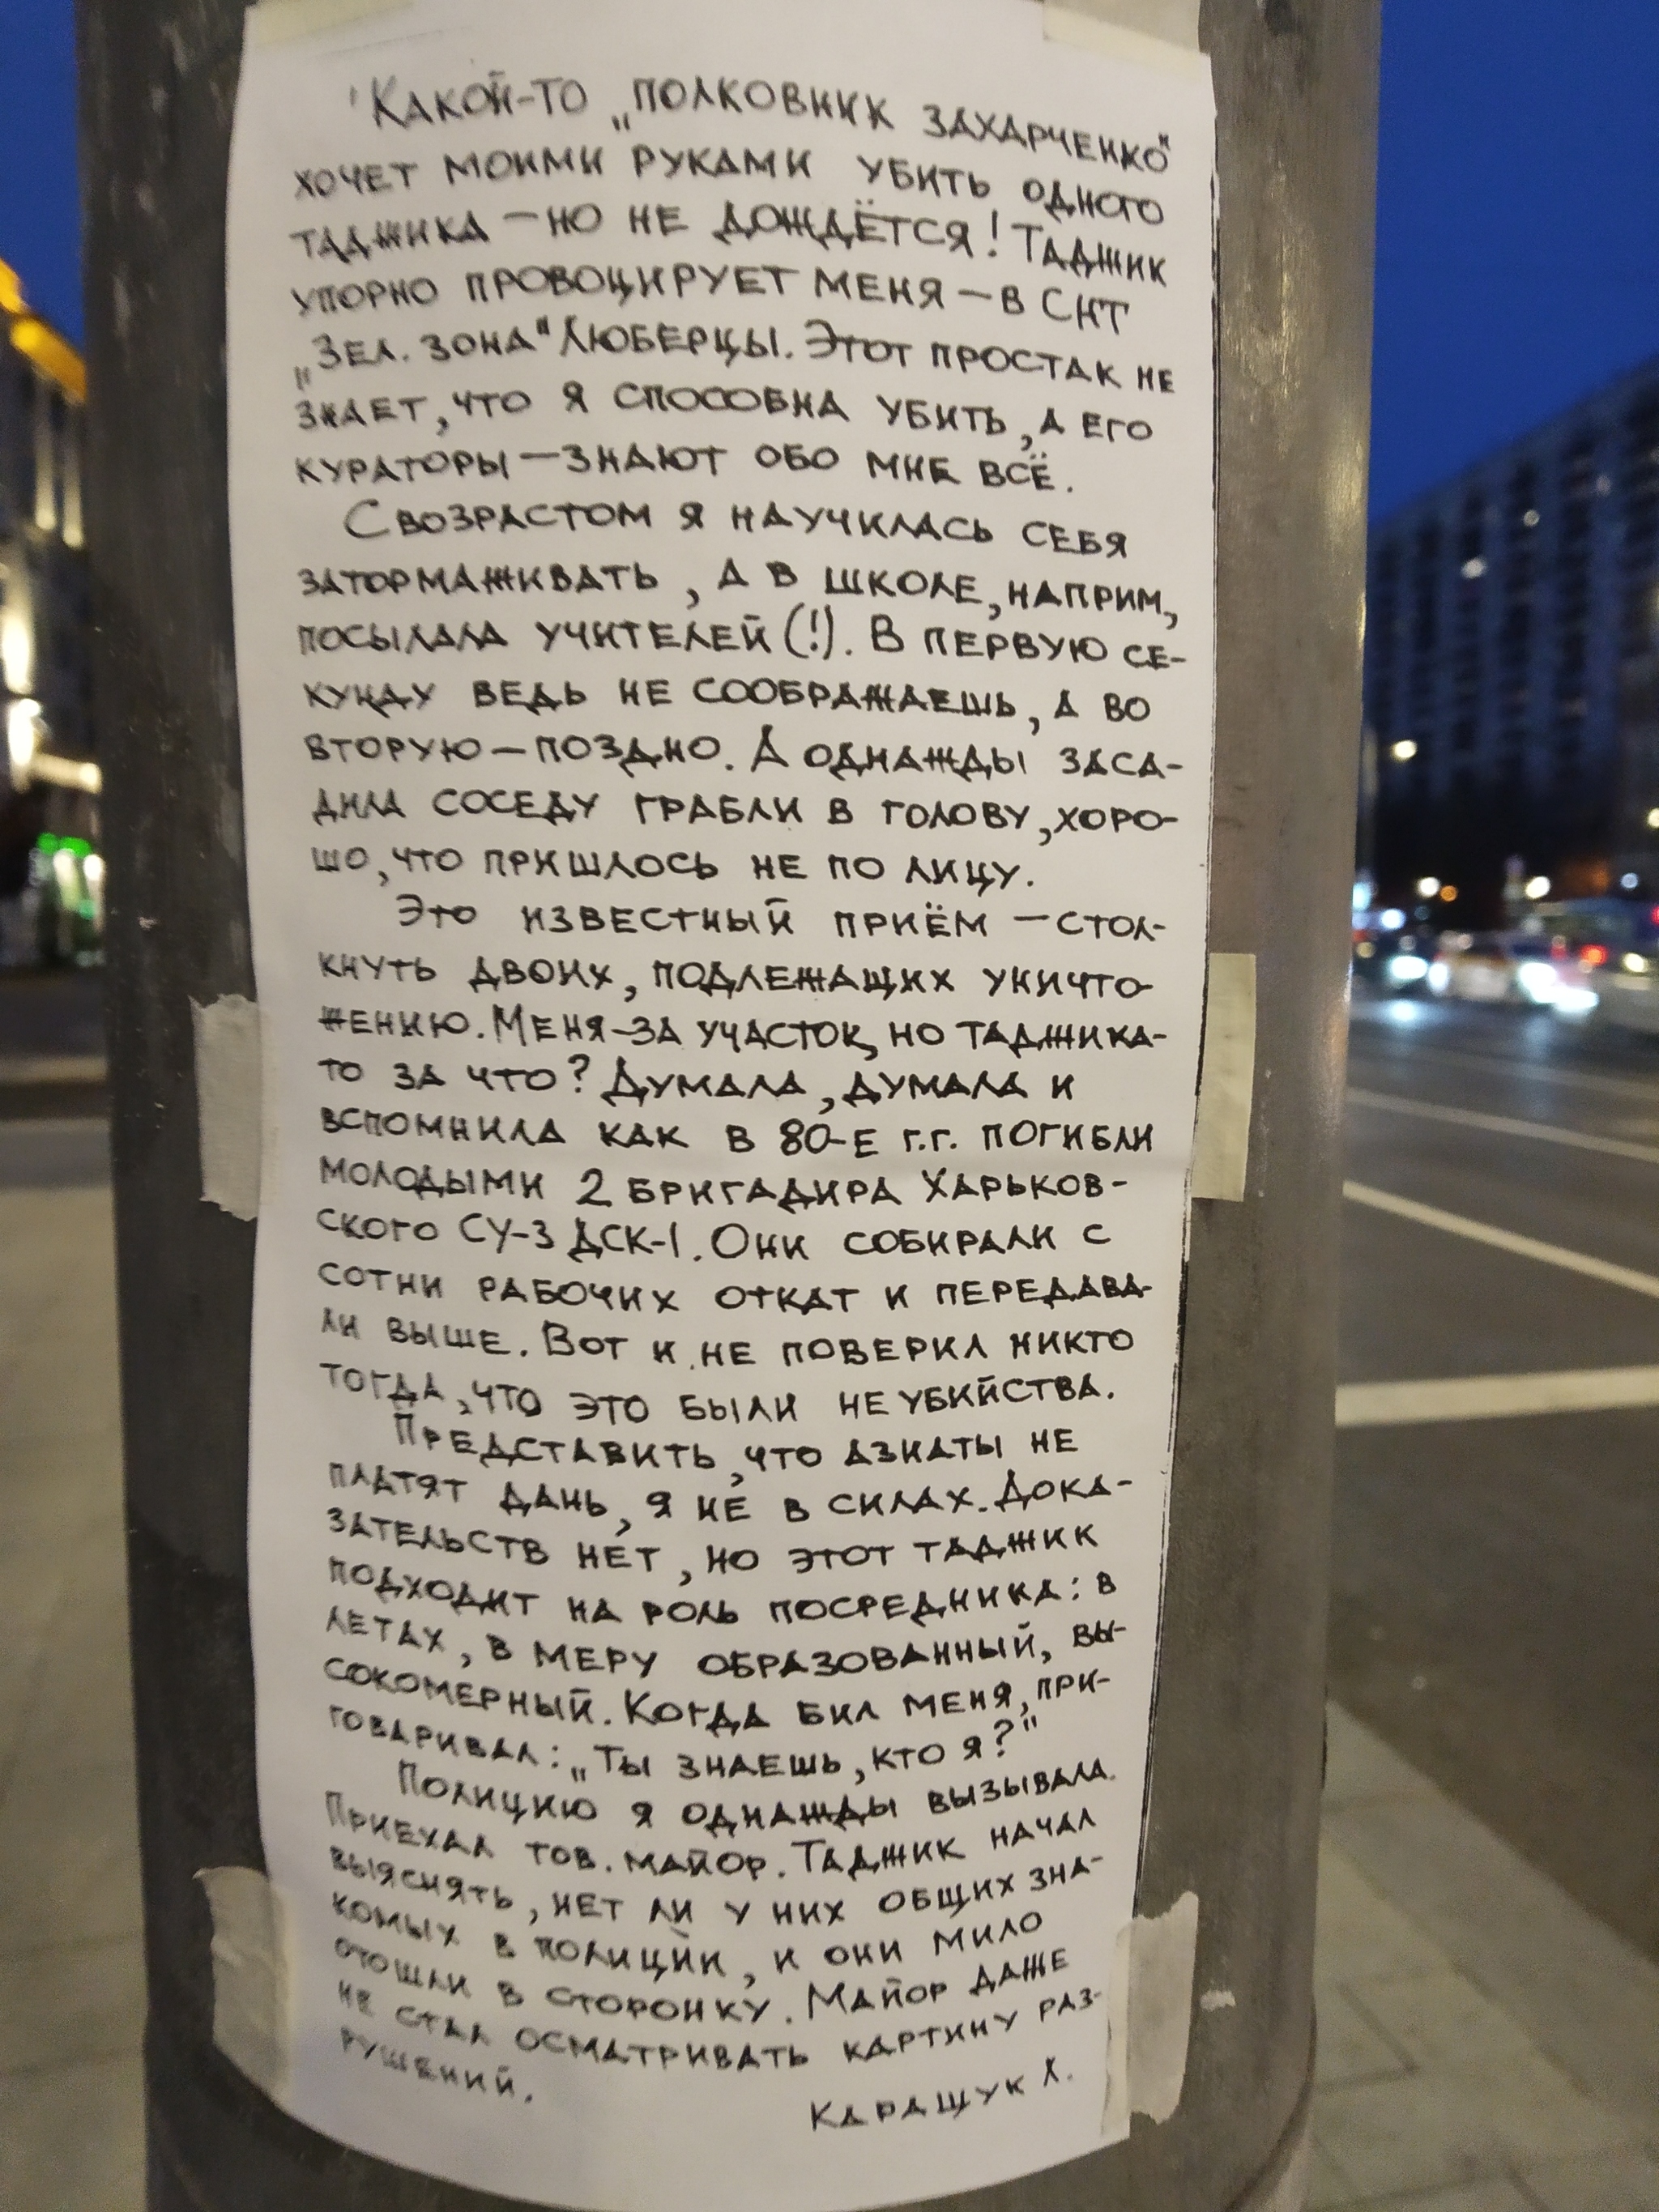 Какой-то „полковник Захарченко"
хочет моими руками убить одного
таджика — но не дождётся! Таджик
упорно провоцирует меня — в СНТ
„Зел. зона" Люберцы. Этот простак не
знает, что я способна убить, а его
кураторы — знают обо мне всё.
С возрастом я научилась себя
затормаживать, а в школе, наприм,
посылала учителей (!). В первую се-
кунду ведь не соображаешь, а во
вторую — поздно. А однажды заса-
дила соседу грабли в голову, хоро-
шо, что пришлось не по лицу.
Это известный приём — стол-
кнуть двоих, подлежащих уничто-
жению. Меня — за участок, но таджика-
то за что? Думала, думала и
вспомнила как в 80-е г.г. погибли
молодыми 2 бригадира Харьков-
ского СУ-3 ДСК-1. Они собирали с
сотни рабочих откат и передава-
ли выше. Вот и не поверил никто
тогда, что это были не убийства.
Представить, что азиаты не
платят дань, я не в силах. Дока-
зательств нет, но этот таджик
подходит на роль посредника: в
летах, в меру образованный, вы-
сокомерный. Когда бил меня, при-
говаривал: „Ты знаешь, кто я?"
Полицию я однажды вызывала.
Приехал тов. майор. Таджик начал
выяснять, нет ли у них общих зна-
комых в полиции, и они мило
отошли в сторонку. Майор даже
не стал осматривать картину раз-
рушений.
Каращук Х.